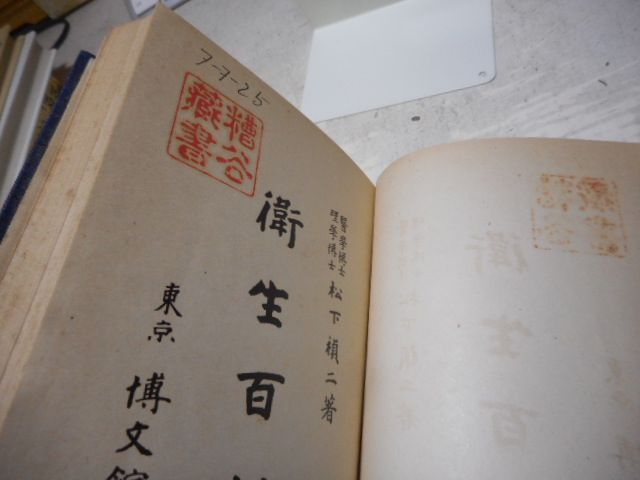 7-7-25
糟谷
藏書
醫學博士
理學博士
松下禎二著
衛生百
東京
博文館